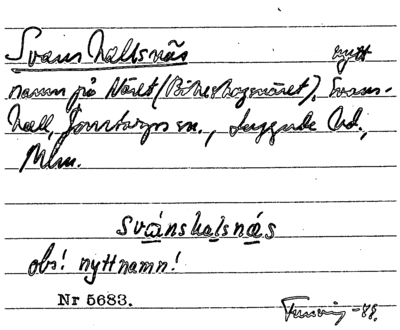 Svanshallsnäs nytt
namn på Näset (Bökeshogenäset), Svans-
hall, Jonstorps sn., Luggude hd.,
Mlm.
Svánshalsnäs
obs! nytt namn!
Nr 5683.
-88.